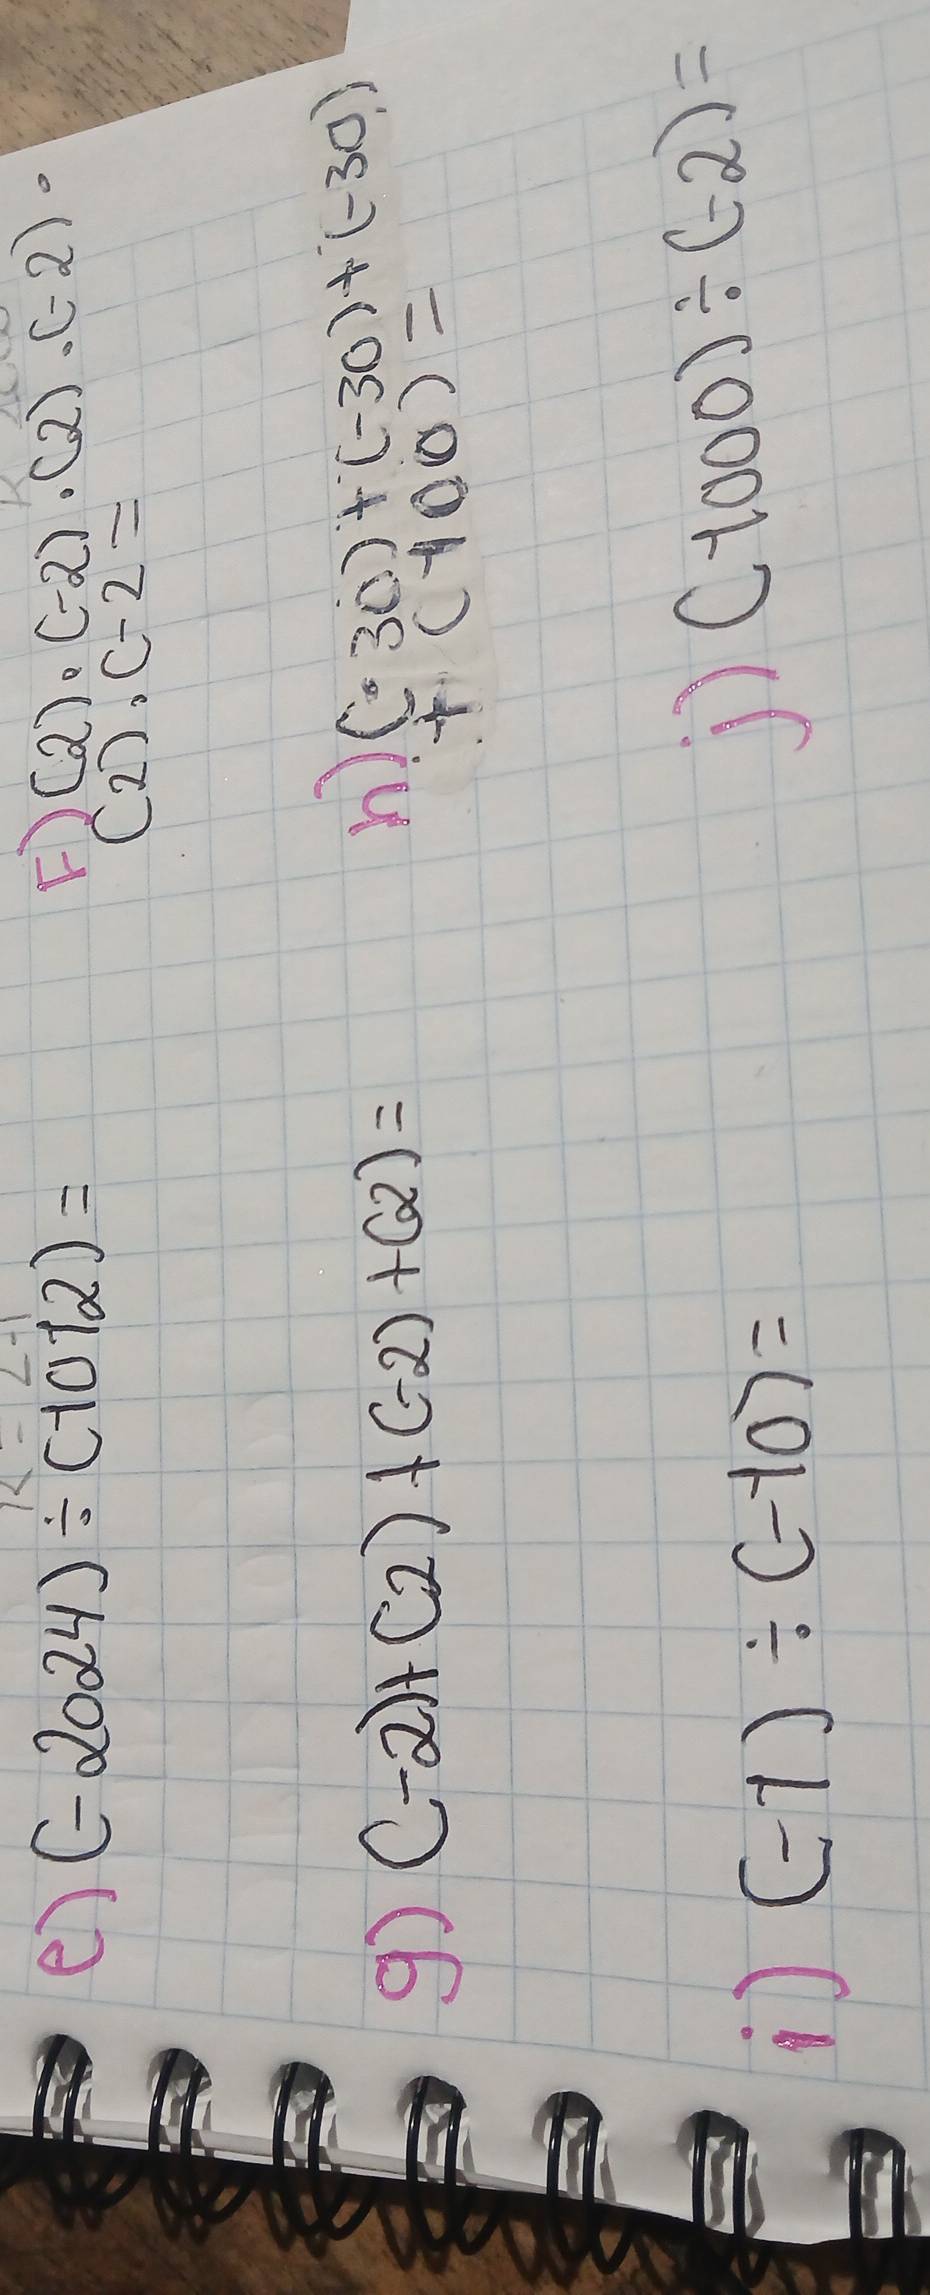 e) (-2024) ÷ (-1012) =
F) (2) . (-2) . (2) . (-2) .
(2) . (-2 =
g) (-2) + (2) + (-2) + (2) =
h) (-30) + (-30) + (-30)
+ (-100) =
i) (-1) ÷ (-10) =
j) (-1000) ÷ (-2) =